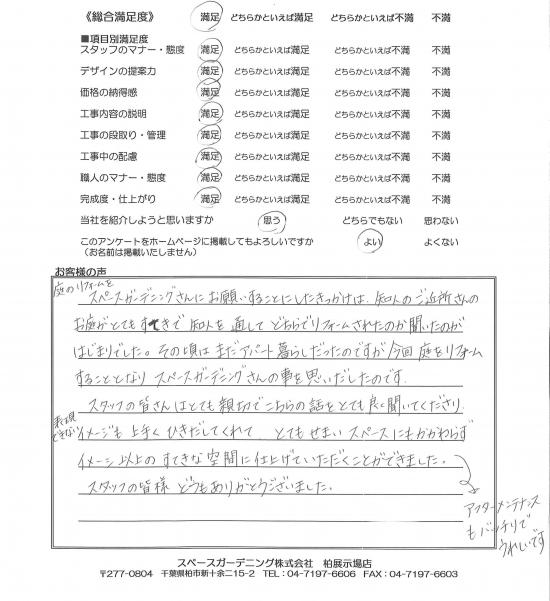 《総合満足度》 満足 どちらかといえば満足 どちらかといえば不満 不満
■項目別満足度
スタッフのマナー・態度 満足 どちらかといえば満足 どちらかといえば不満 不満
デザインの提案力 満足 どちらかといえば満足 どちらかといえば不満 不満
価格の納得感 満足 どちらかといえば満足 どちらかといえば不満 不満
工事内容の説明 満足 どちらかといえば満足 どちらかといえば不満 不満
工事の段取り・管理 満足 どちらかといえば満足 どちらかといえば不満 不満
工事中の配慮 満足 どちらかといえば満足 どちらかといえば不満 不満
職人のマナー・態度 満足 どちらかといえば満足 どちらかといえば不満 不満
完成度・仕上がり 満足 どちらかといえば満足 どちらかといえば不満 不満
当社を紹介しようと思いますか 思う どちらでもない 思わない
このアンケートをホームページに掲載してもよろしいですか よい よくない
(お名前は掲載いたしません)
お客様の声
庭のリフォームを
スペースガーデニングさんにお願いすることにしたきっかけは、知人のご近所さんの
お庭がとてもすてきで知人を通してどちらでリフォームされたのか聞いたのが
はじまりでした。その頃はまだアパート暮らしだったのですが今回庭をリフォーム
することとなりスペースガーデニングさんの事を思いだしたのです.
スタッフの皆さんはとても親切でこちらの話をとても良く聞いてくださり.
表現できない
イメージも上手くひきだしてくれて とてもせまいスペースにもかかわらず
イメージ以上のすてきな空間に仕上げていただくことができました.
スタッフの皆様 どうもありがとうございました.
アフターメンテナンス
もバッチリで
うれしいです
スペースガーデニング株式会社 柏展示場店
〒277-0804 千葉県柏市新十余二15-2 TEL:04-7197-6606 FAX:04-7197-6603